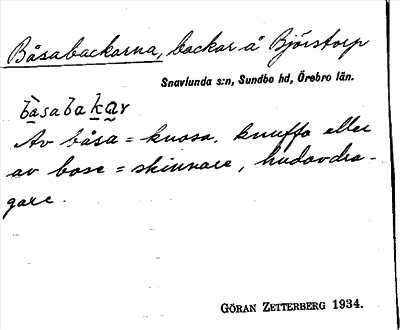 Båsabackarna, backar å Björstorp
Snavlunda s:n, Sundbo hd, Örebro län.
bàsabakar
Av båsa = knosa, knuffa eller
av base = skinnare, hudavdra-
gare.
GÖRAN ZETTERBERG 1934.